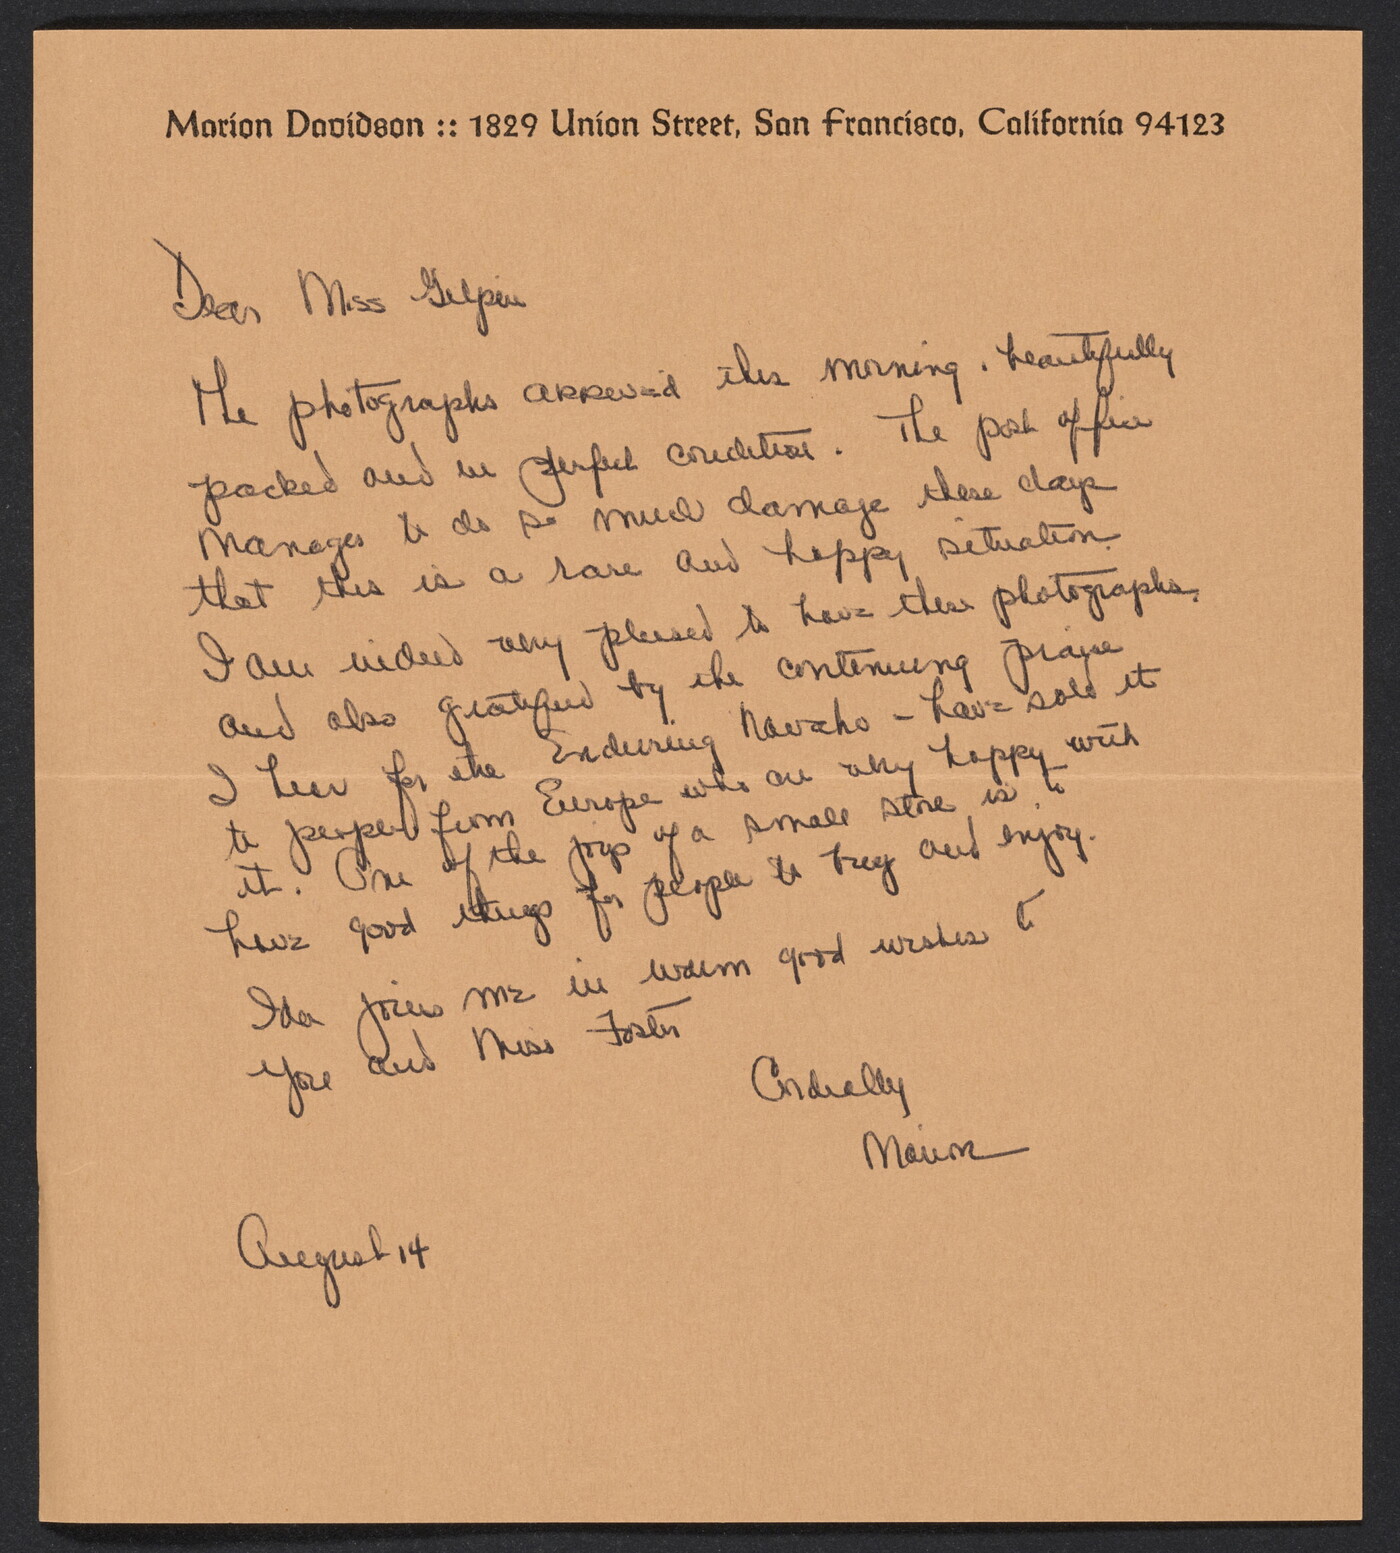 Marion Davidson :: 1829 Union Street, San Francisco, California 94123
Dear Miss Gilpin
The photographs arrived this morning. beautifully
packed and in perfect condition. The post office
manages to do so much damage these days
that this is a rare and happy situation.
I am indeed very pleased to have these photographs.
and also gratified by the continuing praise
I hear for the Enduring Navaho – have sold it
to people from Europe who are very happy with
it. One of the joys of a small store is to
have good things for people to buy and enjoy.
Ida joins me in warm good wishes to
you and Miss Foster
Cordially
Marion
August 14